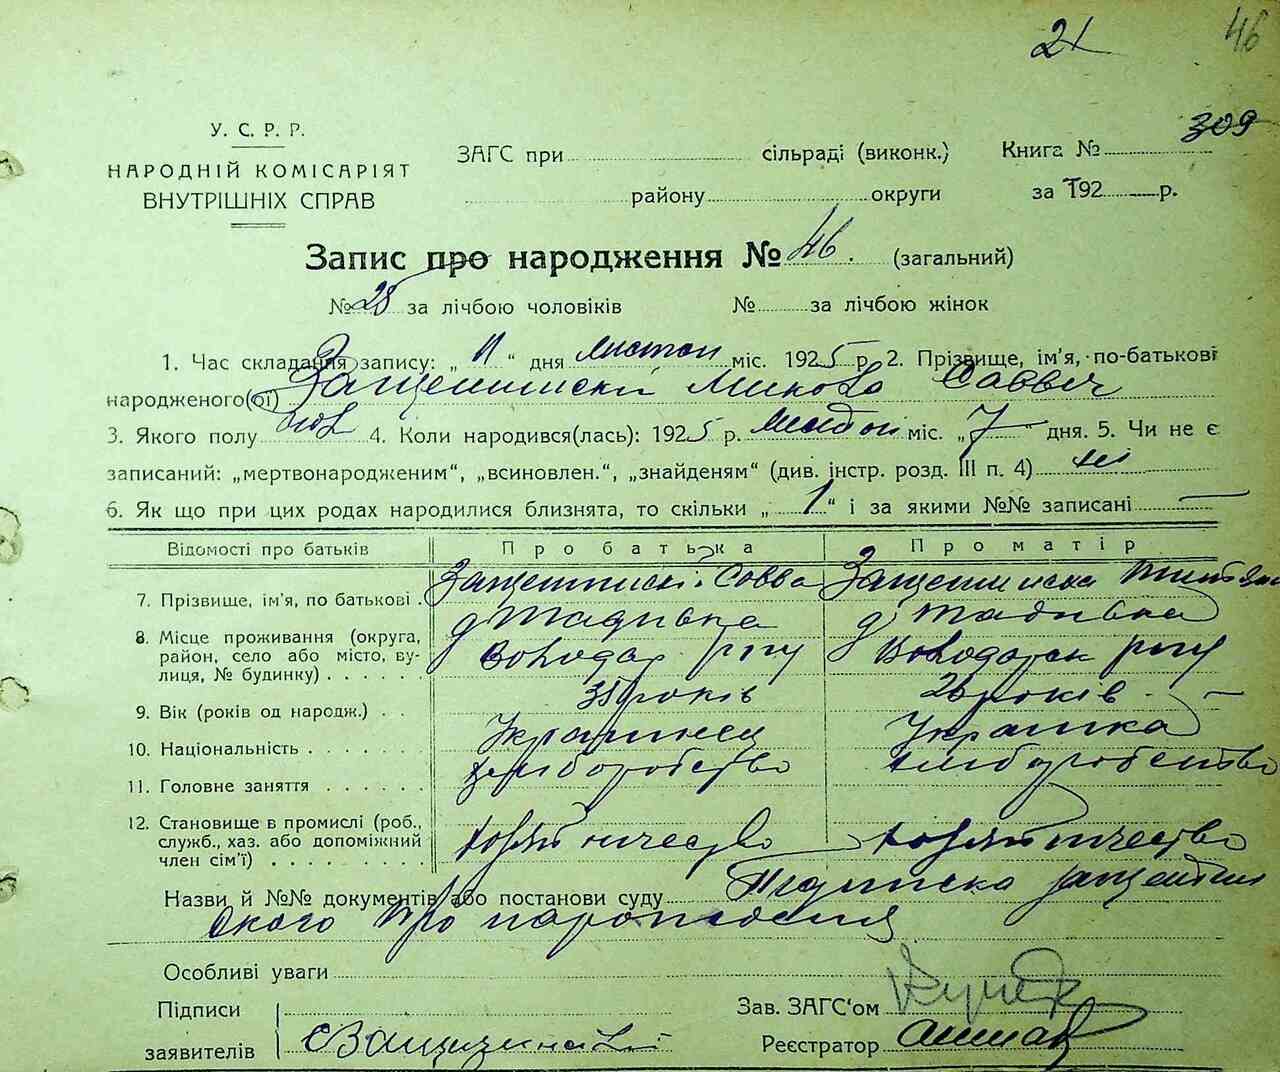 21
46
У. С. Р. Р.
НАРОДНІЙ КОМІСАРІЯТ
ВНУТРІШНІХ СПРАВ
ЗАГС при сільраді (виконк.) Книга № 309
району округи за 192 р.
Запис про народження № 46. (загальний)
№ 28 за лічбою чоловіків № за лічбою жінок
1. Час складання запису: „ 11 “ дня листоп міс. 1925 р. 2. Прізвище, ім'я, по-батькові
народженого(ої) Микола Саввич
3. Якого полу чол 4. Коли народився(лась): 1925 р. міс. „ 7 “ дня. 5. Чи не є
записаний: „мертвонародженим“, „всиновлен.“, „знайденям“ (див. інстр. розд. III п. 4) ні
6. Як що при цих родах народилися близнята, то скільки „ 1 “ і за якими №№ записані —
Відомості про батьків Про батька Про матір
7. Прізвище, ім'я, по батькові . Савва
8. Місце проживання (округа, д д
район, село або місто, ву- Володар. р-ну Володарск р-ну
лиця, № будинку) . . . . . .
9. Вік (років од народж.) . . 35 років 26 років —
10. Національність . . . . . . . Українец Українка
11. Головне заняття . . . . . . хліборобство хліборобство
12. Становище в промислі (роб., хозяйничество хозяйничество
служб., хаз. або допоміжний
член сім'ї) . . . . . . . . .
Назви й №№ документів або постанови суду Підписка
ского про народження
Особливі уваги
Підписи
заявителів
Зав. ЗАГС'ом
Реєстратор